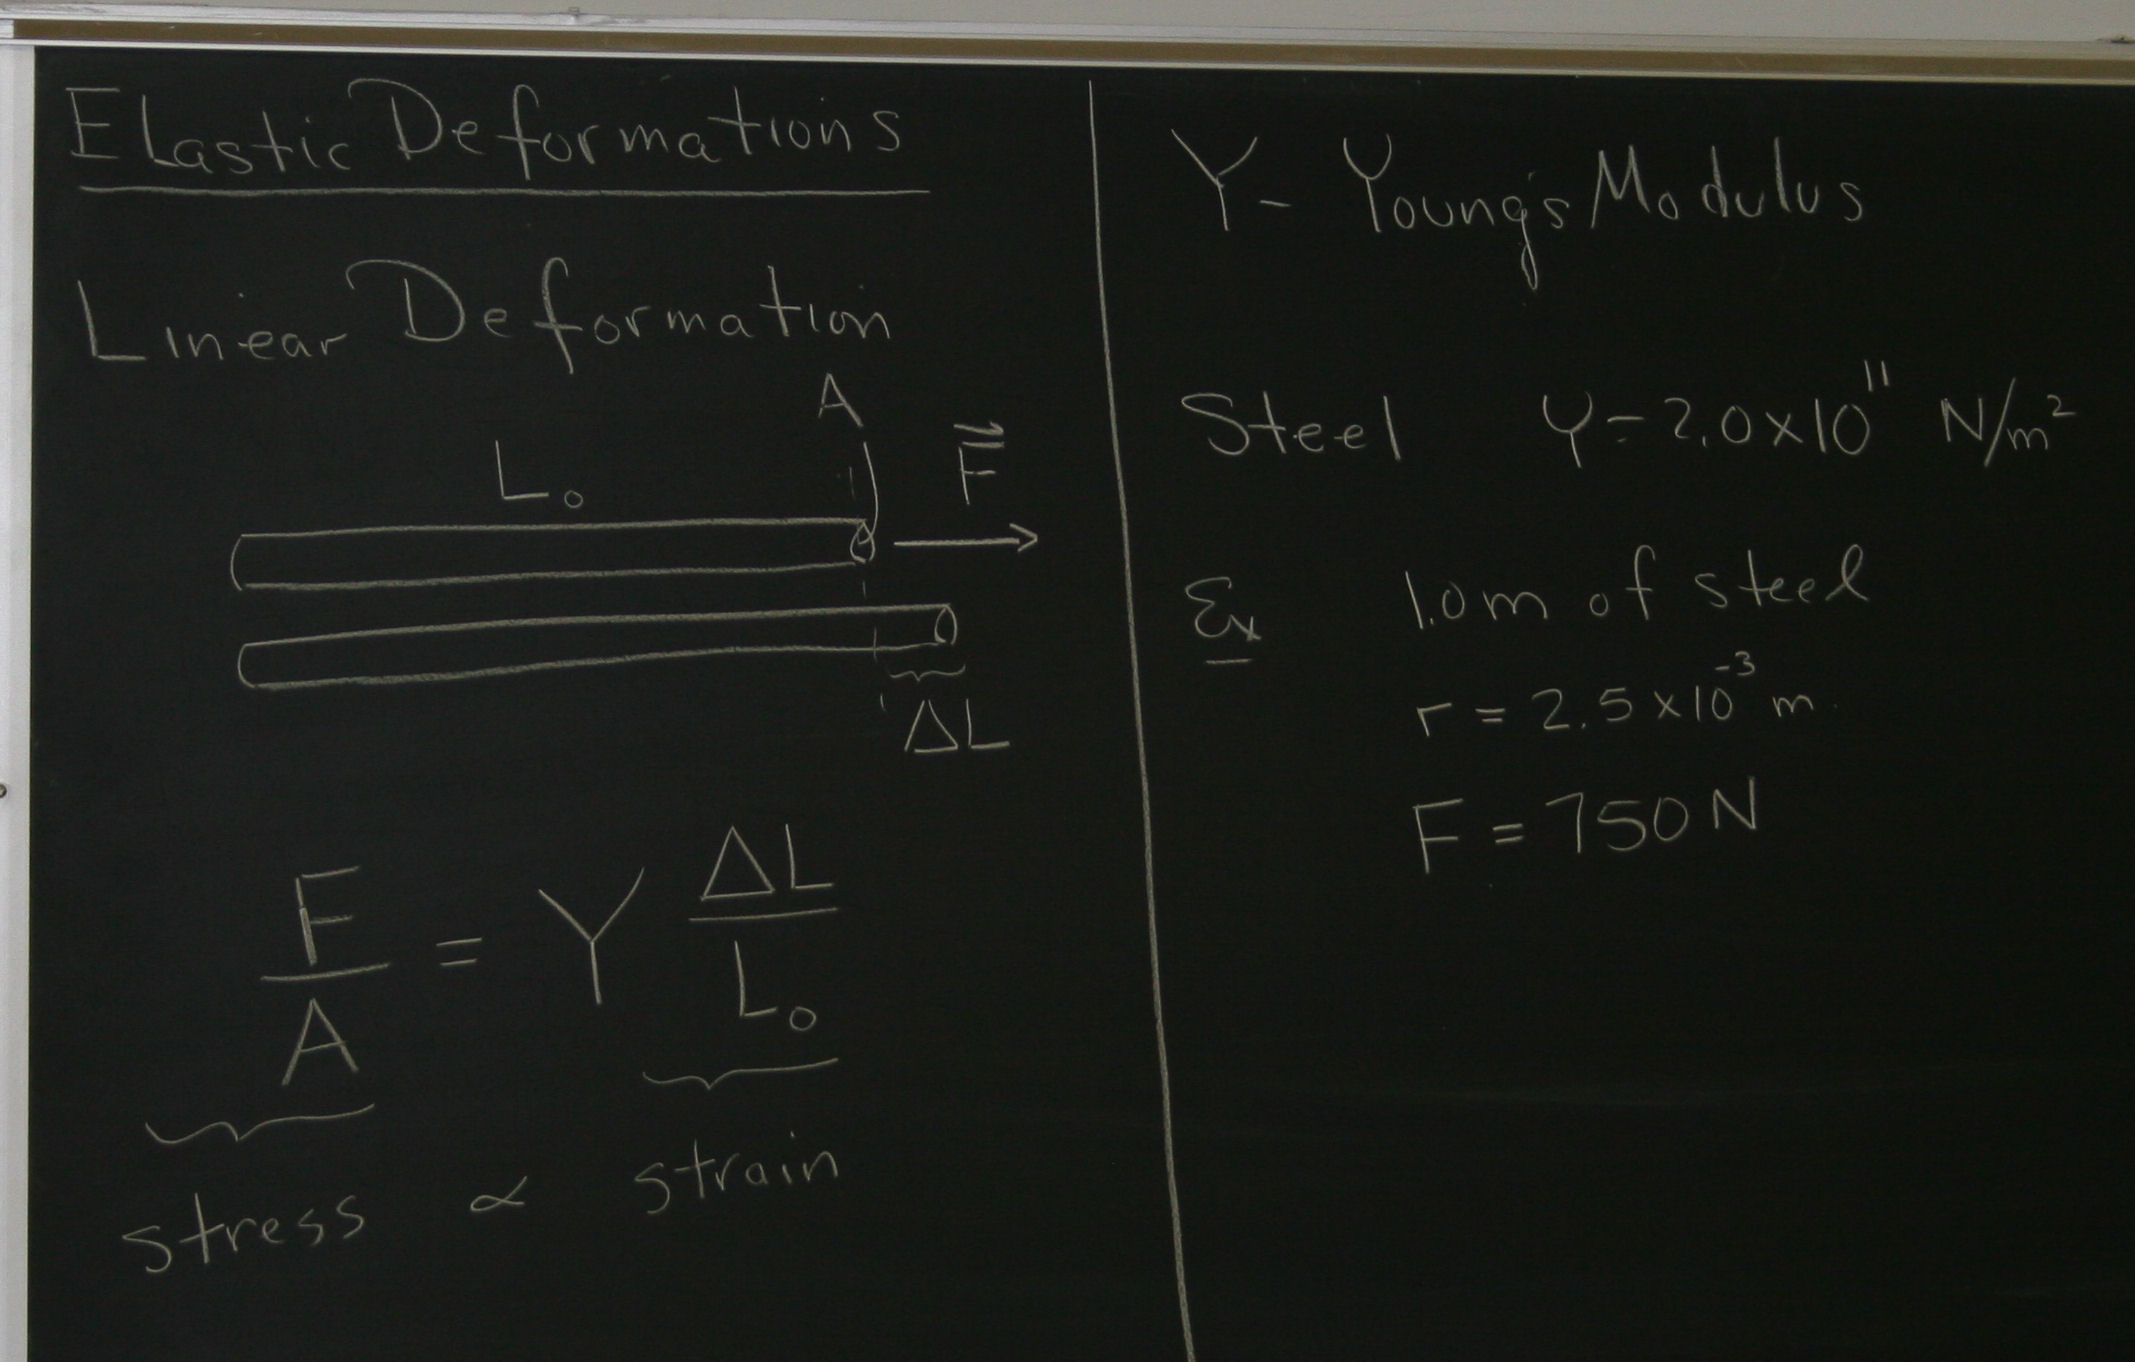 Elastic Deformations
Linear Deformation
A
L₀
F⃗
ΔL
F/A = Y ΔL/L₀
stress ∝ strain
Y - Young's Modulus
Steel Y = 2.0 x 10¹¹ N/m²
Ex 1.0 m of steel
r = 2.5 x 10⁻³ m
F = 750 N